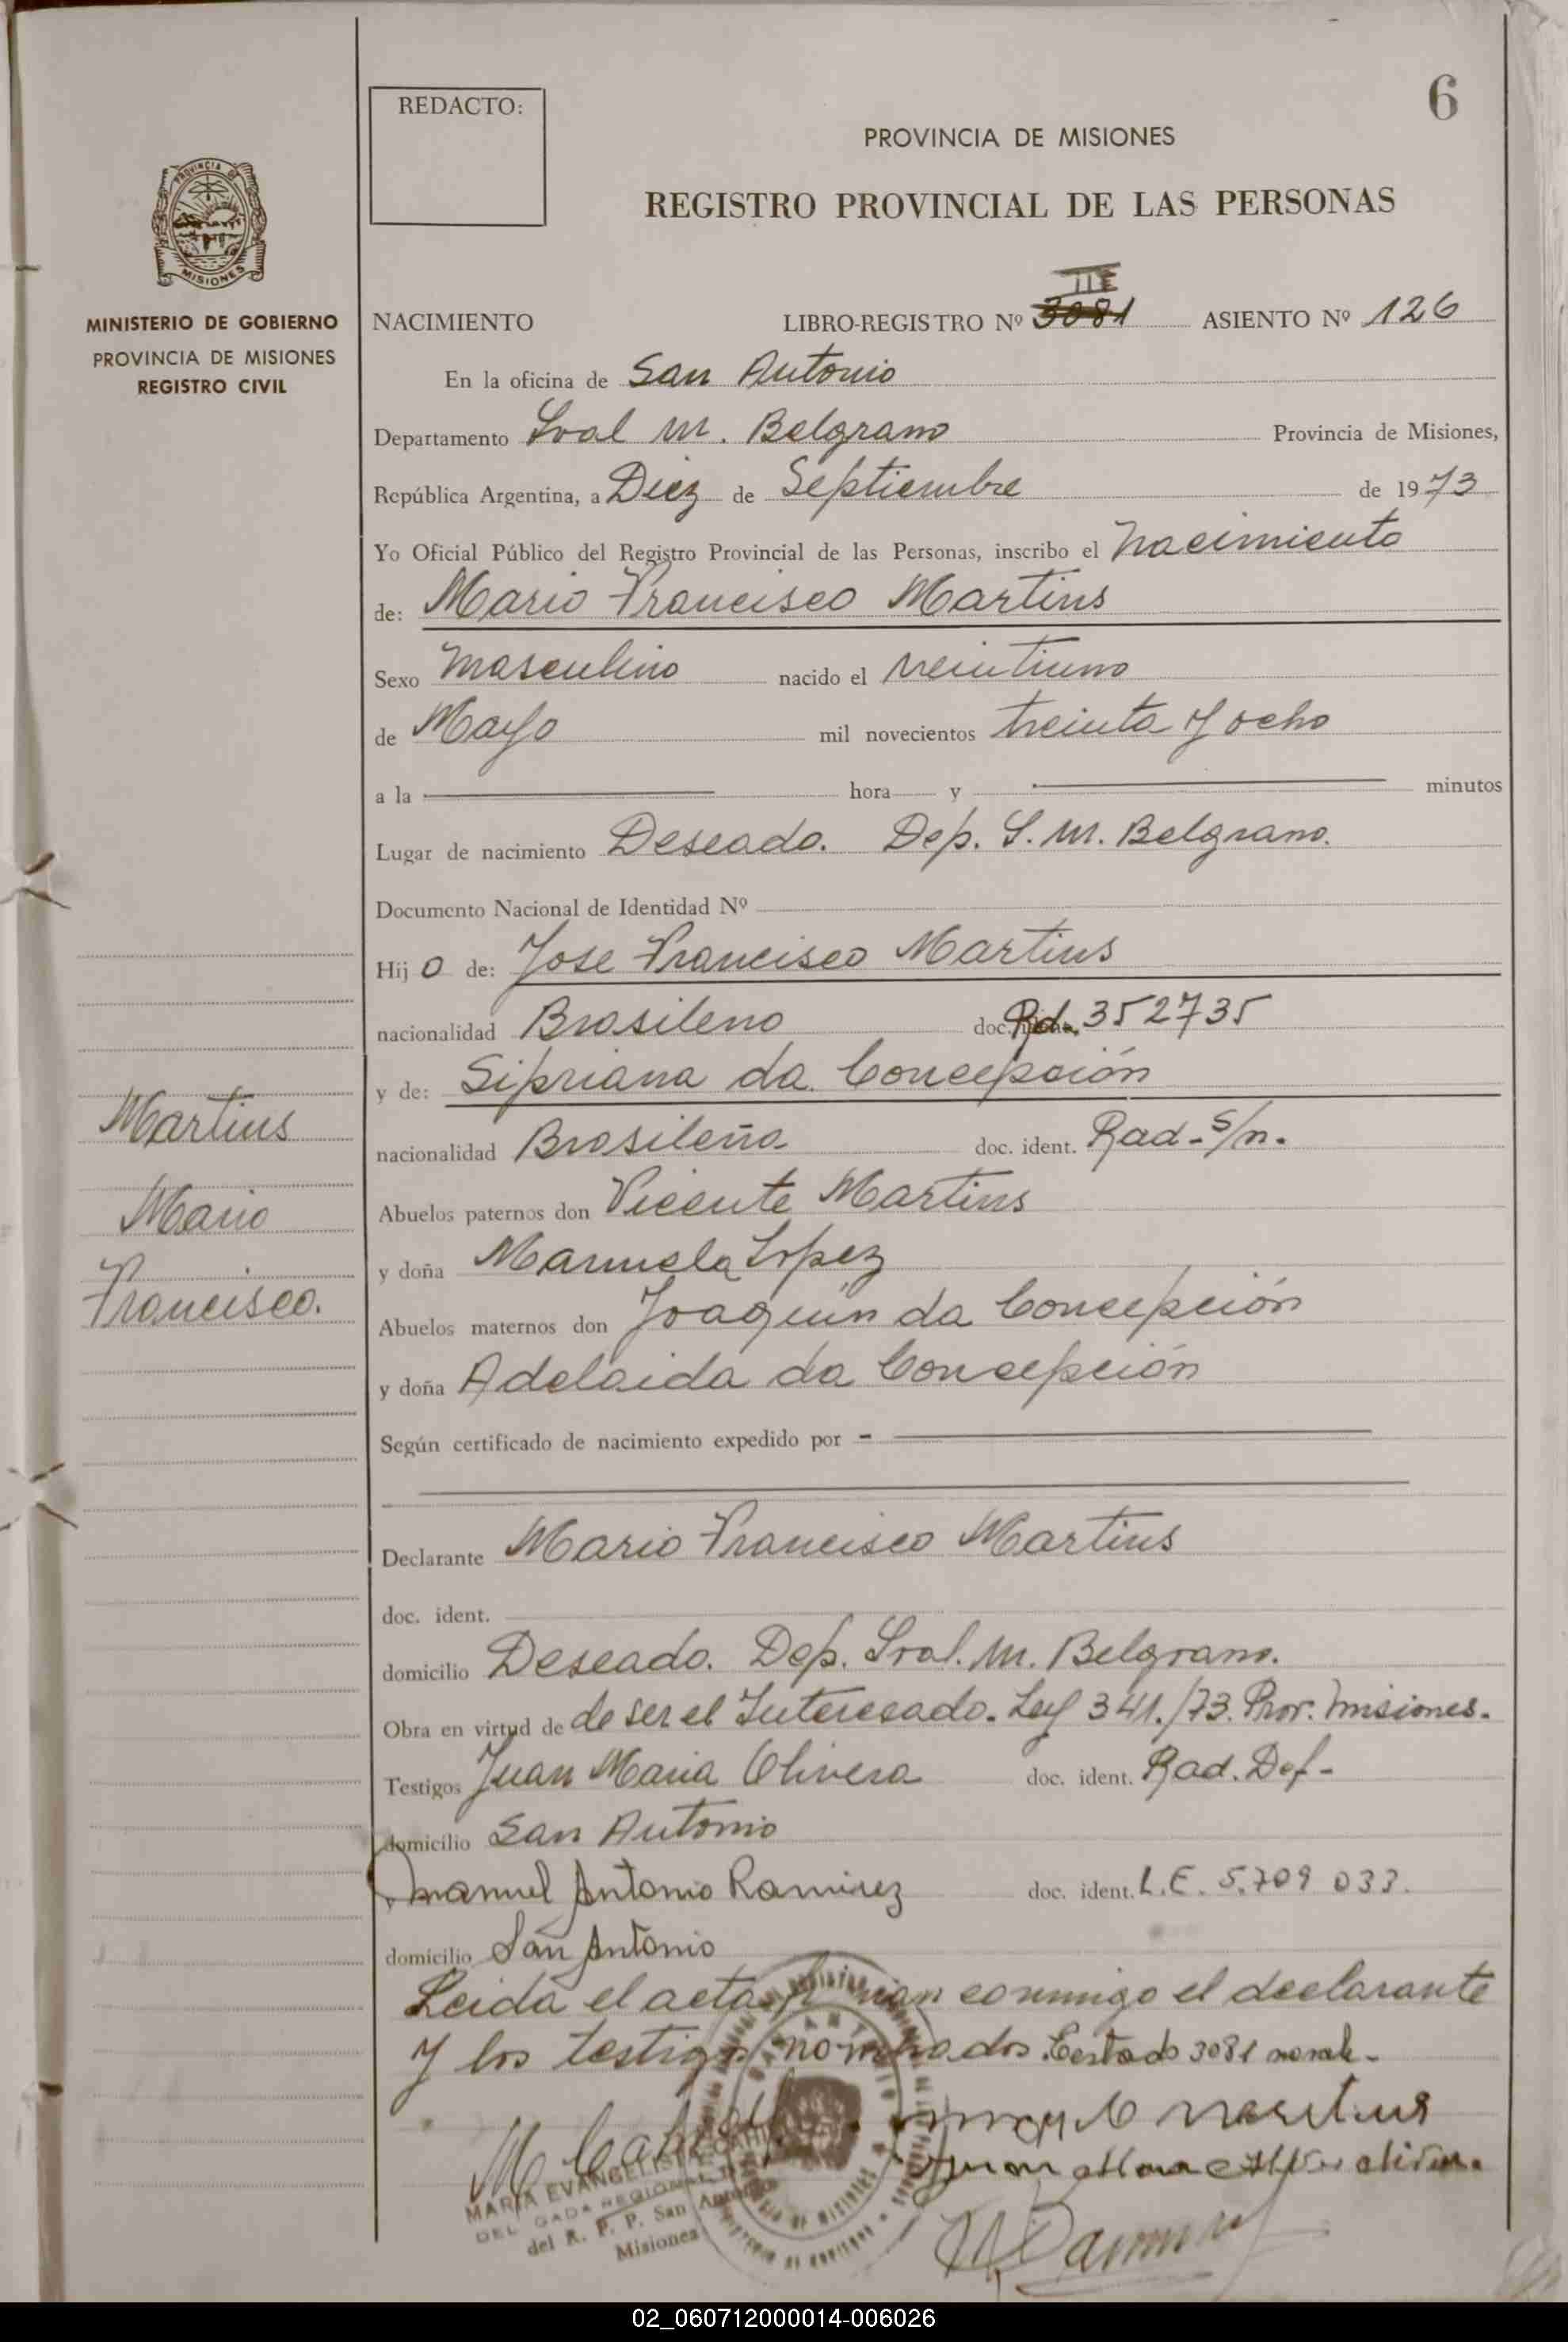 6
REDACTO:
PROVINCIA DE MISIONES
REGISTRO PROVINCIAL DE LAS PERSONAS
PROVINCIA DE
MISIONES
MINISTERIO DE GOBIERNO
PROVINCIA DE MISIONES
REGISTRO CIVIL
III
NACIMIENTO LIBRO-REGISTRO Nº 3081 ASIENTO Nº 126
En la oficina de San Antonio
Departamento Gral M. Belgrano Provincia de Misiones,
República Argentina, a Diez de Septiembre de 1973
Yo Oficial Público del Registro Provincial de las Personas, inscribo el Nacimiento
de: Mario Francisco Martins
Sexo Masculino nacido el veintiuno
de Mayo mil novecientos treinta y ocho
a la hora y minutos
Lugar de nacimiento Deseado. Dep. G. M. Belgrano.
Documento Nacional de Identidad Nº
Hijo de: Jose Francisco Martins
nacionalidad Brasileno doc. Rd. 352735
y de: Sipriana da Concepción
nacionalidad Brasileña doc. ident. Rad - s/n.
Abuelos paternos don Vicente Martins
y doña Manuela Lopez
Abuelos maternos don Joaquin da Concepción
y doña Adelaida da Concepción
Según certificado de nacimiento expedido por -
Martins
Mario
Francisco.
Declarante Mario Francisco Martins
doc. ident.
domicilio Deseado. Dep. Gral. M. Belgrano.
Obra en virtud de de ser el Interesado. Ley 341./73. Prov. Misiones.
Testigos Juan Maria Olivera doc. ident. Rad. Def-
domicilio San Antonio
y Manuel Antonio Ramirez doc. ident. L.E. 5.709 033.
domicilio San Antonio
Leida el acta firman conmigo el declarante
y los testigos nombrados. Testado 3081 no vale-
MARIA EVANGELISTA
DELEGADA REGIONAL
del R. P. P. San Antonio
Misiones
02_060712000014-006026